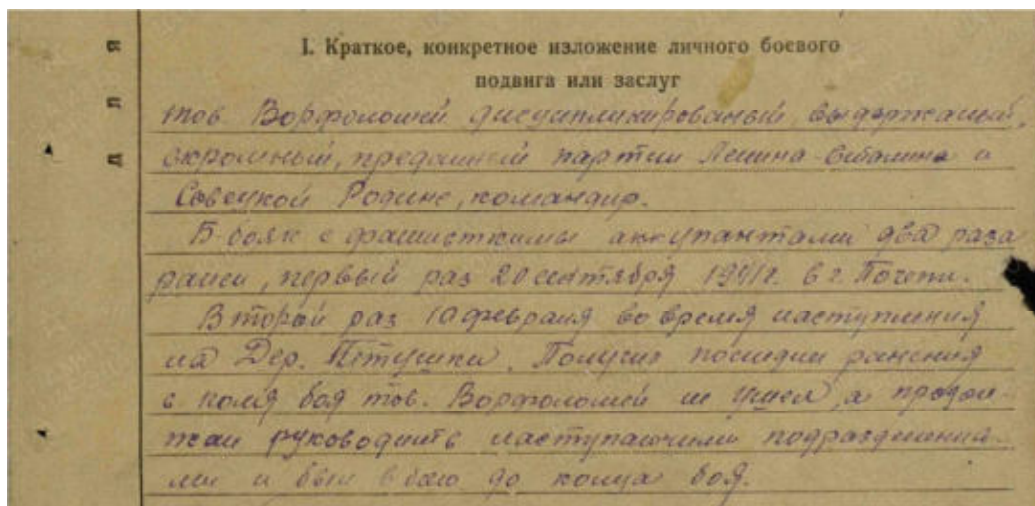 I. Краткое, конкретное изложение личного боевого
подвига или заслуг
тов. Ворфоломей дисциплинированый, выдержаный,
скромный, преданный партии Ленина-Сталина и
Совецкой Родине, командир.
В боях с фашисткими аккупантами два раза
ранен, первый раз 20 сентября 1941г. в г. Почепи.
Второй раз 10 февраля во время наступления
на Дер. Петушки. Получив последнии ранения
с поля боя тов. Ворфоломей не ушел, а продол-
жал руководить наступаючими подразделения-
ми и был в бою до конца боя.
для